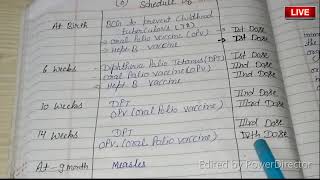 (6) Schedule of
LIVE
At Birth BCG to prevent Childhood Ist Dose
tuberculosis (TB)
→ Oral Polio vaccine (OPV) Ist Dose
→ Hept. B vaccine
6 Weeks Diphtheria Polio Tetanus (DPT) Ist Dose
- Oral Polio vaccine (OPV) IInd Dose
- Hept. B vaccine IInd Dose
10 Weeks DPT IInd Dose
OPV (oral Polio vaccine) IIIrd Dose
14 Weeks DPT IIIrd Dose
OPV. (oral Polio vaccine) IVth Dose
At-9 month Measles
Edited by PowerDirector